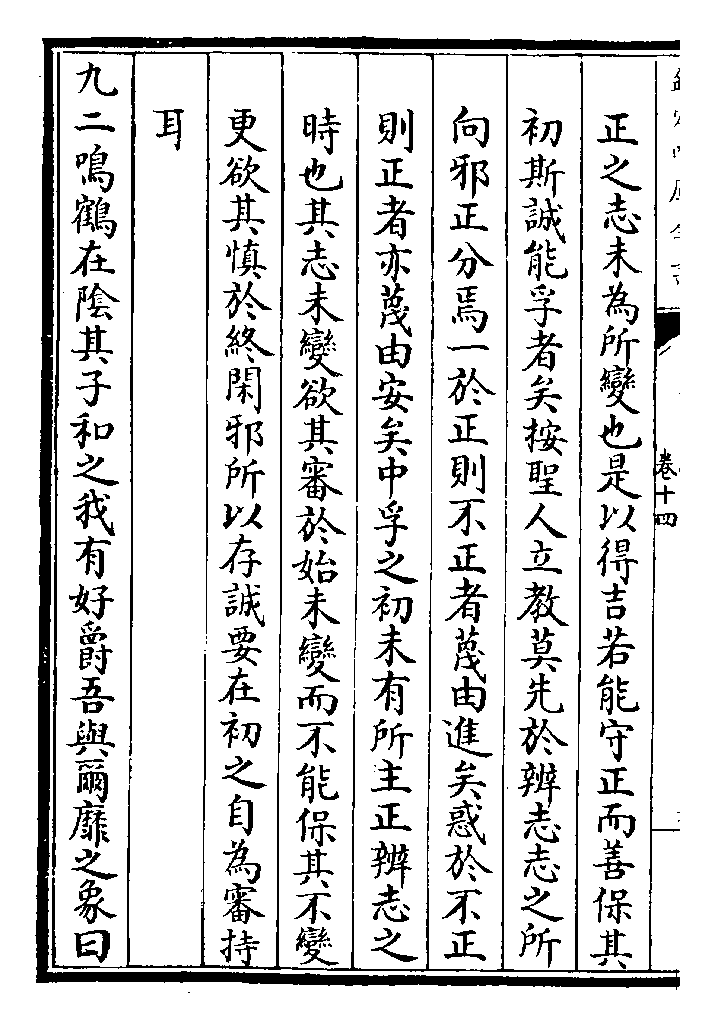 卷十四
正之志未為所變也是以得吉若能守正而善保其
初斯誠能孚者矣按聖人立教莫先於辨志志之所
向邪正分焉一於正則不正者蔑由進矣惑於不正
則正者亦蔑由安矣中孚之初未有所主正辨志之
時也其志未變欲其審於始未變而不能保其不變
更欲其慎於終閑邪所以存誠要在初之自為審持
耳
九二鳴鶴在陰其子和之我有好爵吾與爾靡之象曰